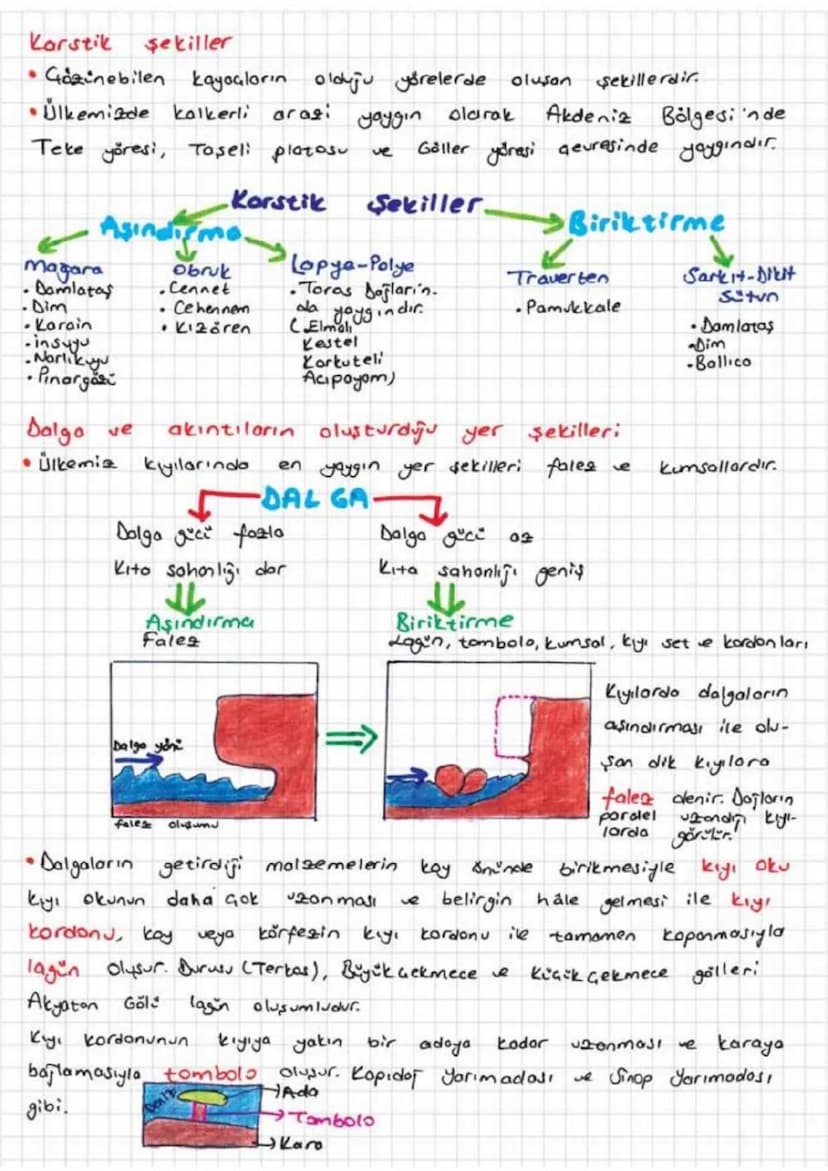 Karstik şekiller
• Çözünebilen kayaçların olduğu yörelerde oluşan şekillerdir.
• Ülkemizde kalkerli arazi yaygın olarak Akdeniz Bölgesi'nde
Teke yöresi, Taşeli platosu ve Göller yöresi çevresinde yaygındır.
Karstik Şekiller
Aşındırma
Biriktirme
Mağara
• Damlataş
• Dim
• Karain
• insuyu
• Narlıkuyu
• Pınargözü
Obruk
• Cennet
• Cehennem
• Kızören
Lapya-Polye
• Toros Dağların-
da yaygındır.
( Elmalı
Kestel
Korkuteli
Acıpayam)
Traverten
• Pamukkale
Sarkıt-Dikit
Sütun
• Damlataş
• Dim
• Ballıca
Dalga ve akıntıların oluşturduğu yer şekilleri
• Ülkemiz kıyılarında en yaygın yer şekilleri falez ve kumsallardır.
DALGA
Dalga gücü fazla
Kıta sahanlığı dar
Aşındırma
Falez
Dalga gücü az
Kıta sahanlığı geniş
Biriktirme
Lagün, tombolo, kumsal, kıyı set ve kordonları
Dalga yönü
falez oluşumu
Kıyılarda dalgaların
aşındırması ile olu-
şan dik kıyılara
falez denir. Dağların
paralel uzandığı kıyı-
larda görülür.
• Dalgaların getirdiği malzemelerin koy önünde birikmesiyle kıyı oku
kıyı okunun daha çok uzanması ve belirgin hâle gelmesi ile kıyı
kordonu, koy veya körfezin kıyı kordonu ile tamamen kapanmasıyla
lagün oluşur. Durusu (Terkos), Büyükçekmece ve Küçükçekmece gölleri
Akyatan Gölü lagün oluşumludur.
Kıyı kordonunun kıyıya yakın bir adaya kadar uzanması ve karaya
bağlamasıyla tombolo oluşur. Kapıdağ Yarımadası ve Sinop Yarımadası
gibi.
Deniz
Ada
Tombolo
Kara